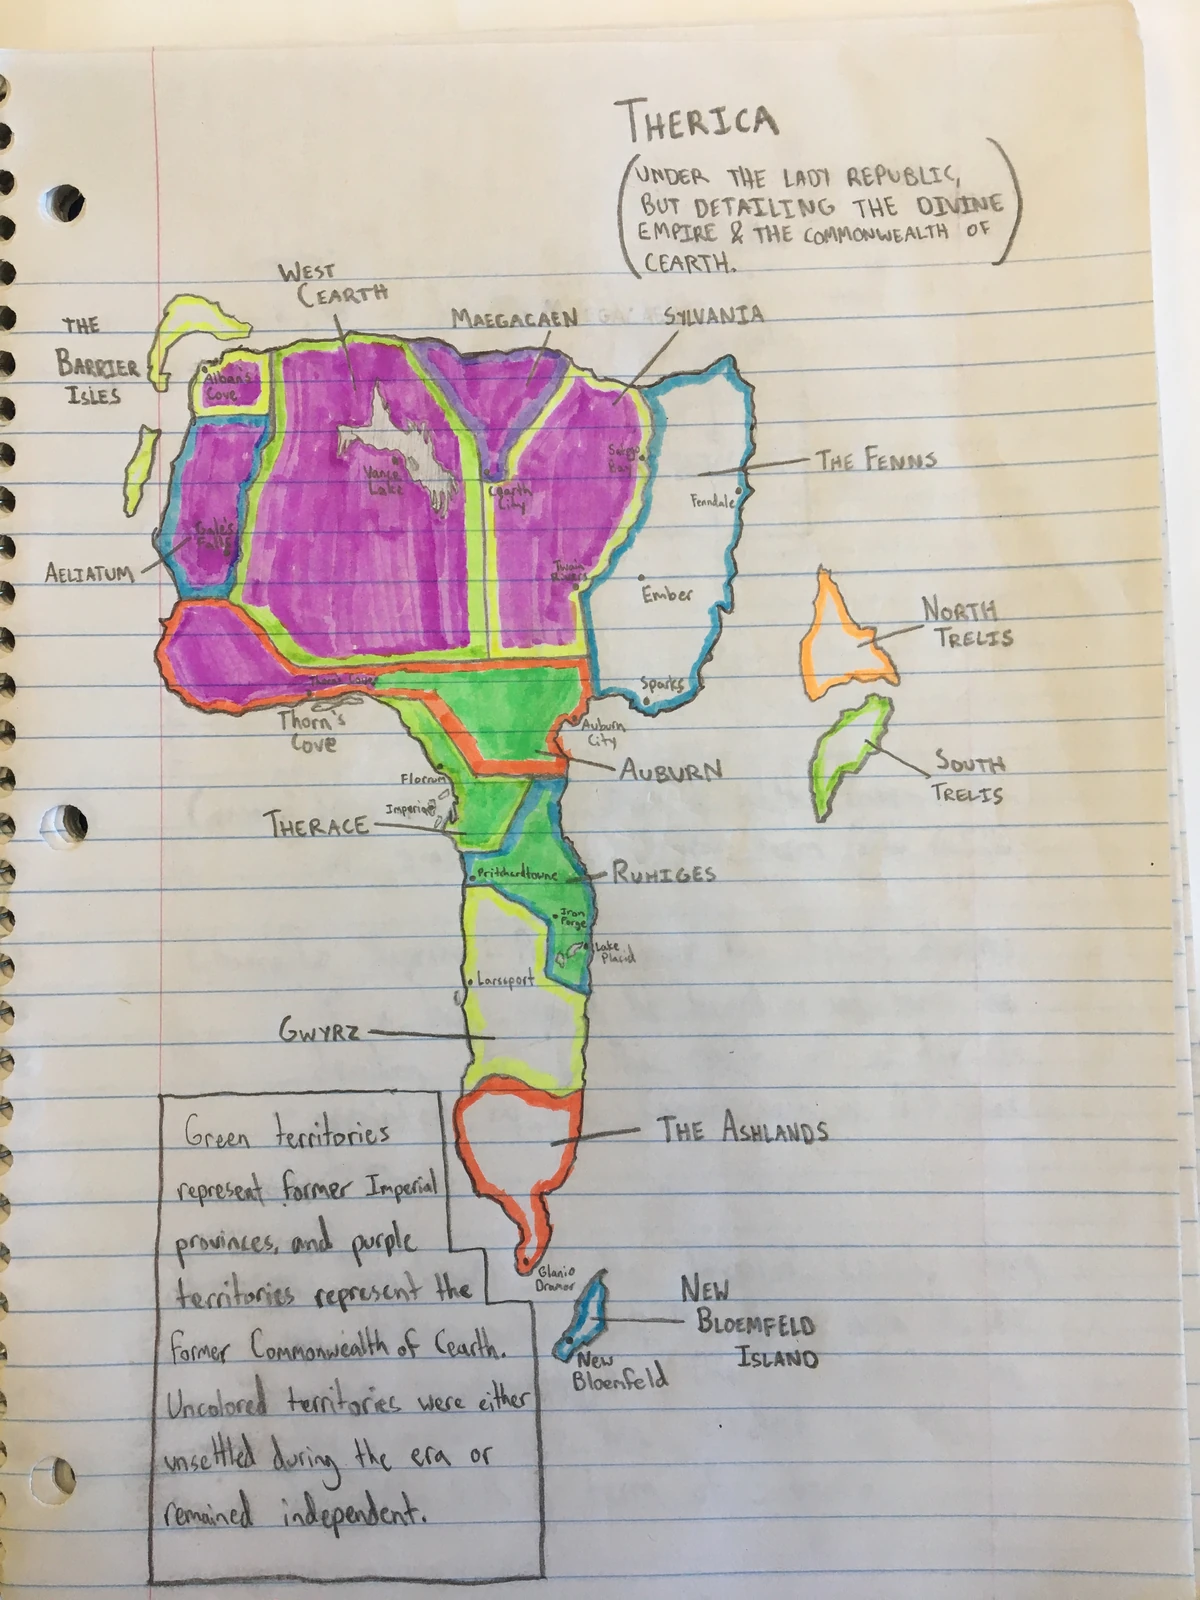 THERICA
(UNDER THE LADY REPUBLIC,
BUT DETAILING THE DIVINE
EMPIRE & THE COMMONWEALTH OF
CEARTH.)
WEST
CEARTH
MAEGACAEN
SYLVANIA
THE
BARRIER
ISLES
Alban's
Cove
Vance
Lake
Cearth
City
Bay
THE FENNS
Fenndale
Gale's
Falls
AELIATUM
Twain
Rivers
Ember
NORTH
TRELIS
Sparks
Thorn's
Cove
Auburn
City
AUBURN
SOUTH
TRELIS
Florrum
Imperia
THERACE
Pritchardtowne
RUHIGES
Iron
Forge
Lake
Placid
Larssport
GWYRZ
THE ASHLANDS
Glanio
Dramor
NEW
BLOEMFELD
ISLAND
New
Bloemfeld
Green territories
represent former Imperial
provinces, and purple
territories represent the
former Commonwealth of Cearth.
Uncolored territories were either
unsettled during the era or
remained independent.